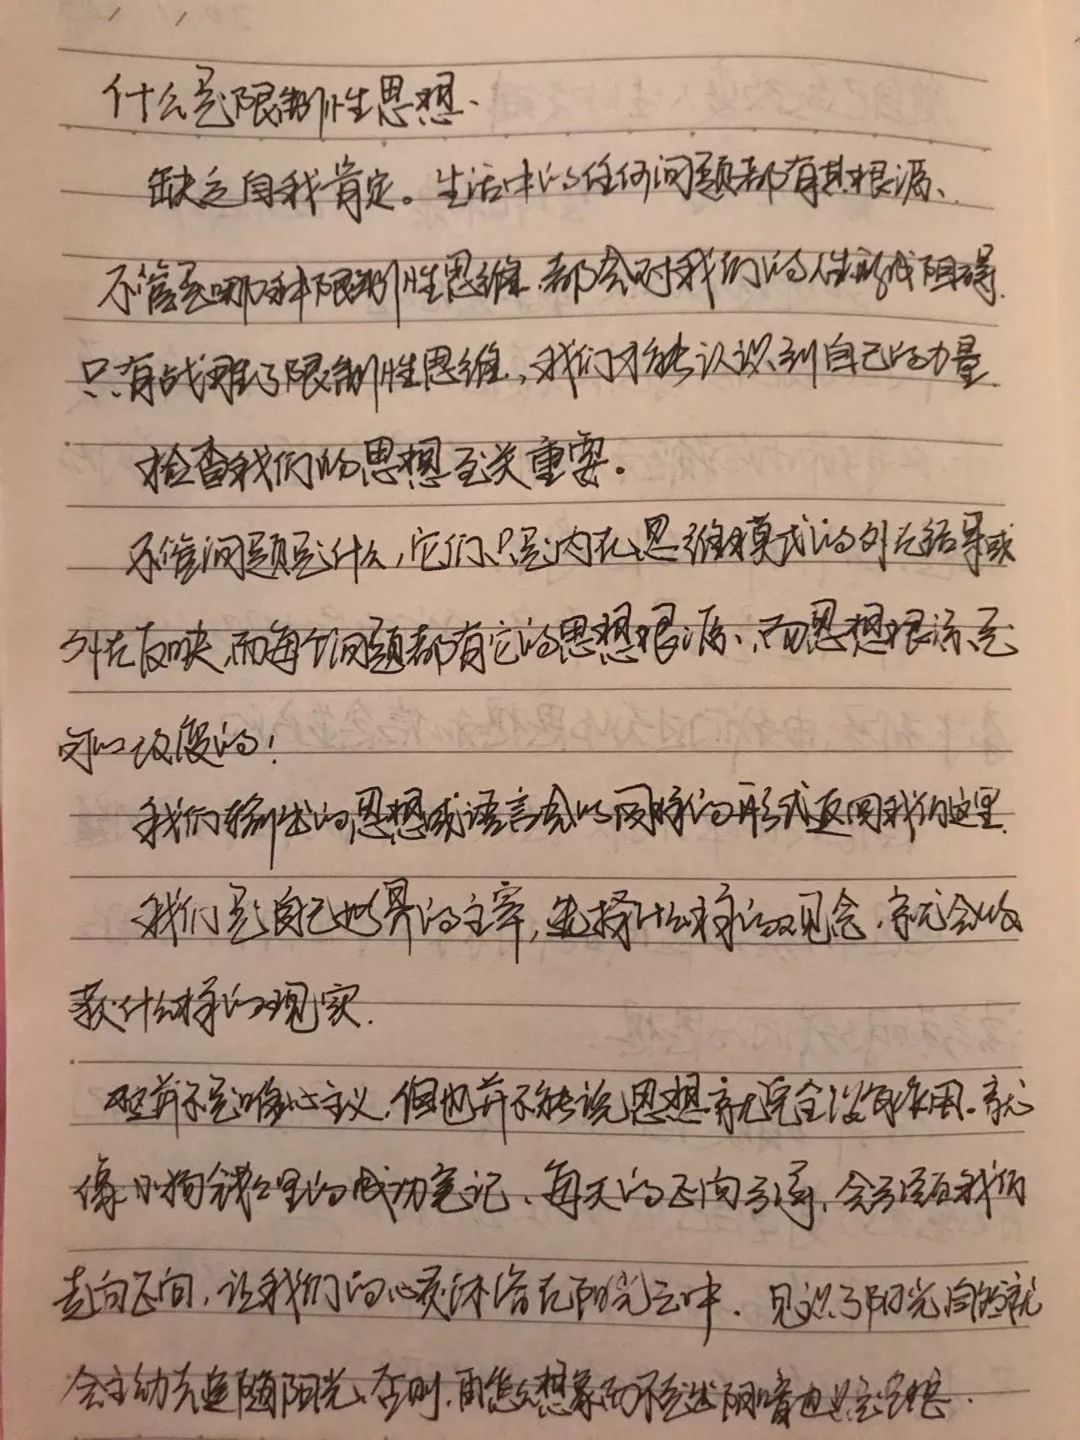 什么是限制性思想、
缺乏自我肯定。生活中的任何问题都有其根源、
不管是哪种限制性思维,都会对我们的人生形成阻碍.
只有战胜了限制性思维,我们才能认识到自己的力量.
检查我们的思想至关重要。
不管问题是什么,它们只是内在思维模式的外在结果或
外在反映,而每个问题都有它的思想根源、而思想根源是
可以改变的!
我们输出的思想或语言会以同样的形式返回我们这里.
我们是自己世界的主宰,选择什么样的观念,就会收
获什么样的现实.
这并不是唯心主义,但也并不能说思想就完全没有作用。就
像小狗钱钱里的成功笔记、每天的正向引导,会引领我们
走向正向,让我们的心灵沐浴在阳光之中、见识了阳光自然就
会主动去追随阳光、否则,再怎么想象而不走出阴暗也是